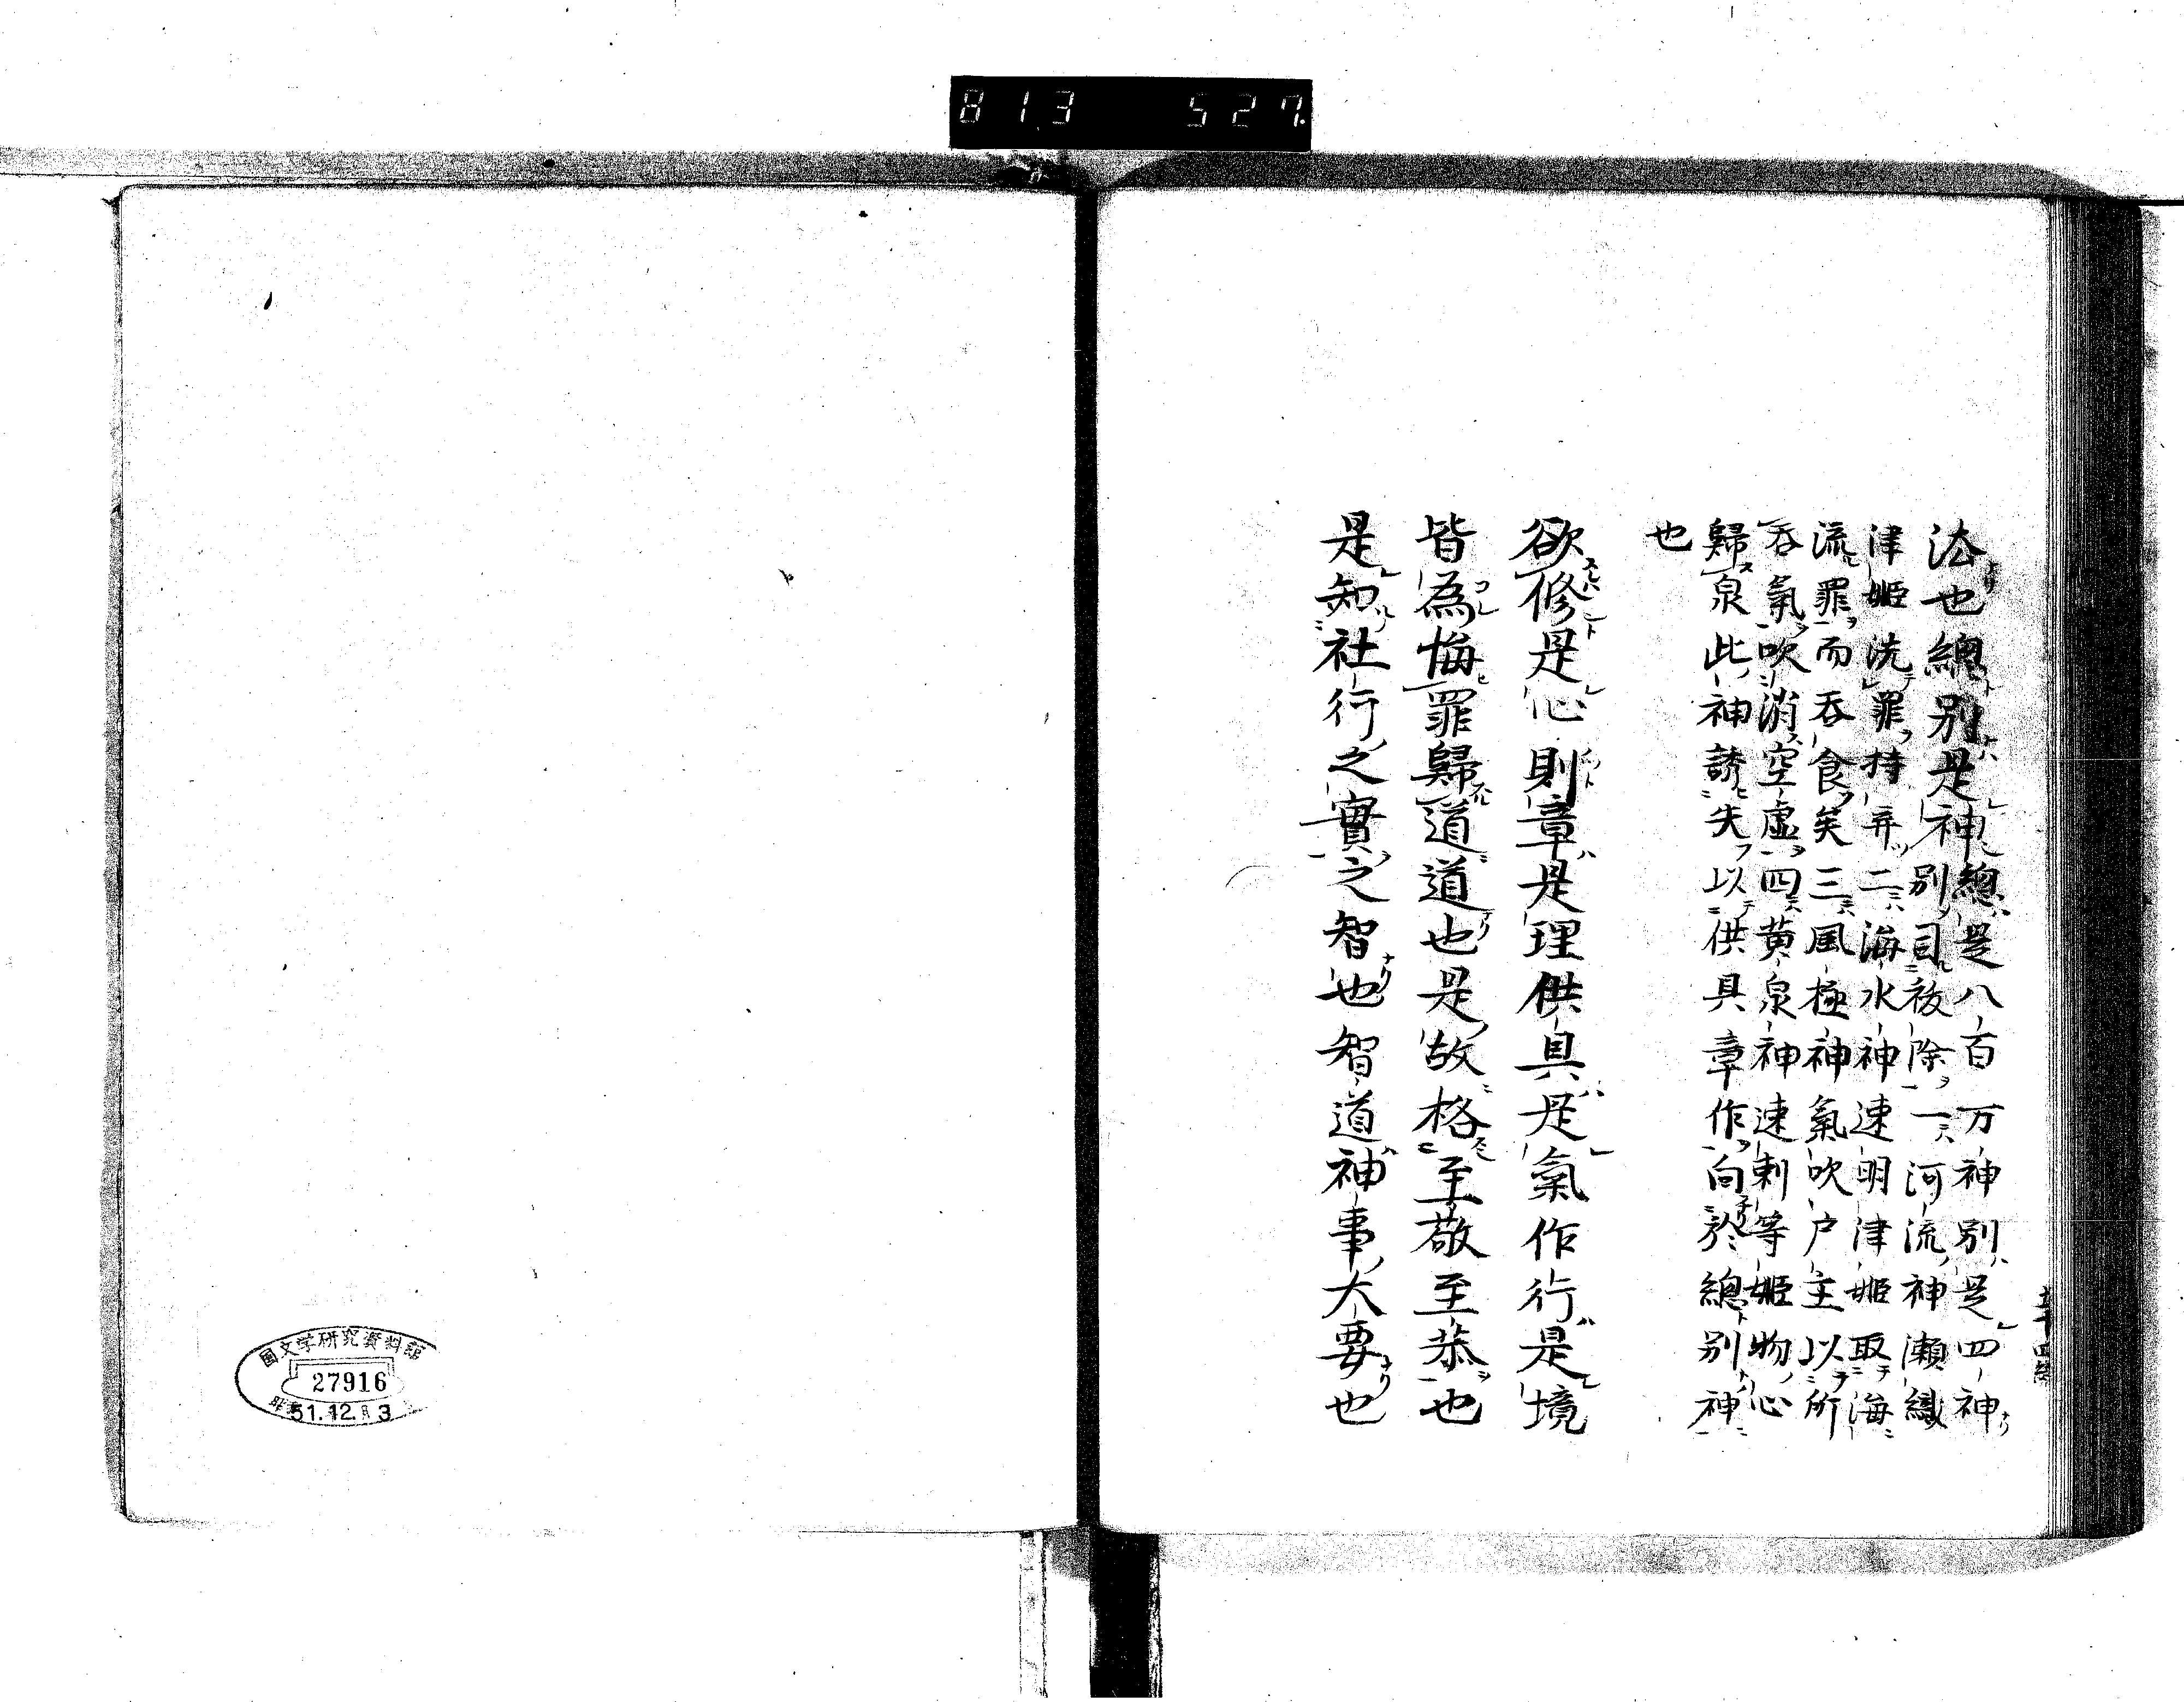 813 527
五十四終
法也總別是神
總是八百万神別是四神
別司祓除一河流神瀬織
津姫洗罪持弃二海水神速明津姫取海
流罪而呑食矣三風極神氣吹戸主以所
呑氣吹消空虚四黄泉神速刺等姫物心
歸泉此神誘失以供具章作向於總別神
也
欲修是心則章是理供具是氣作行是境
皆為悔罪歸道道也是故格至敬至恭也
是知社行之實之智也智道神事大要也
国文学研究資料館
27916
51.12.月3